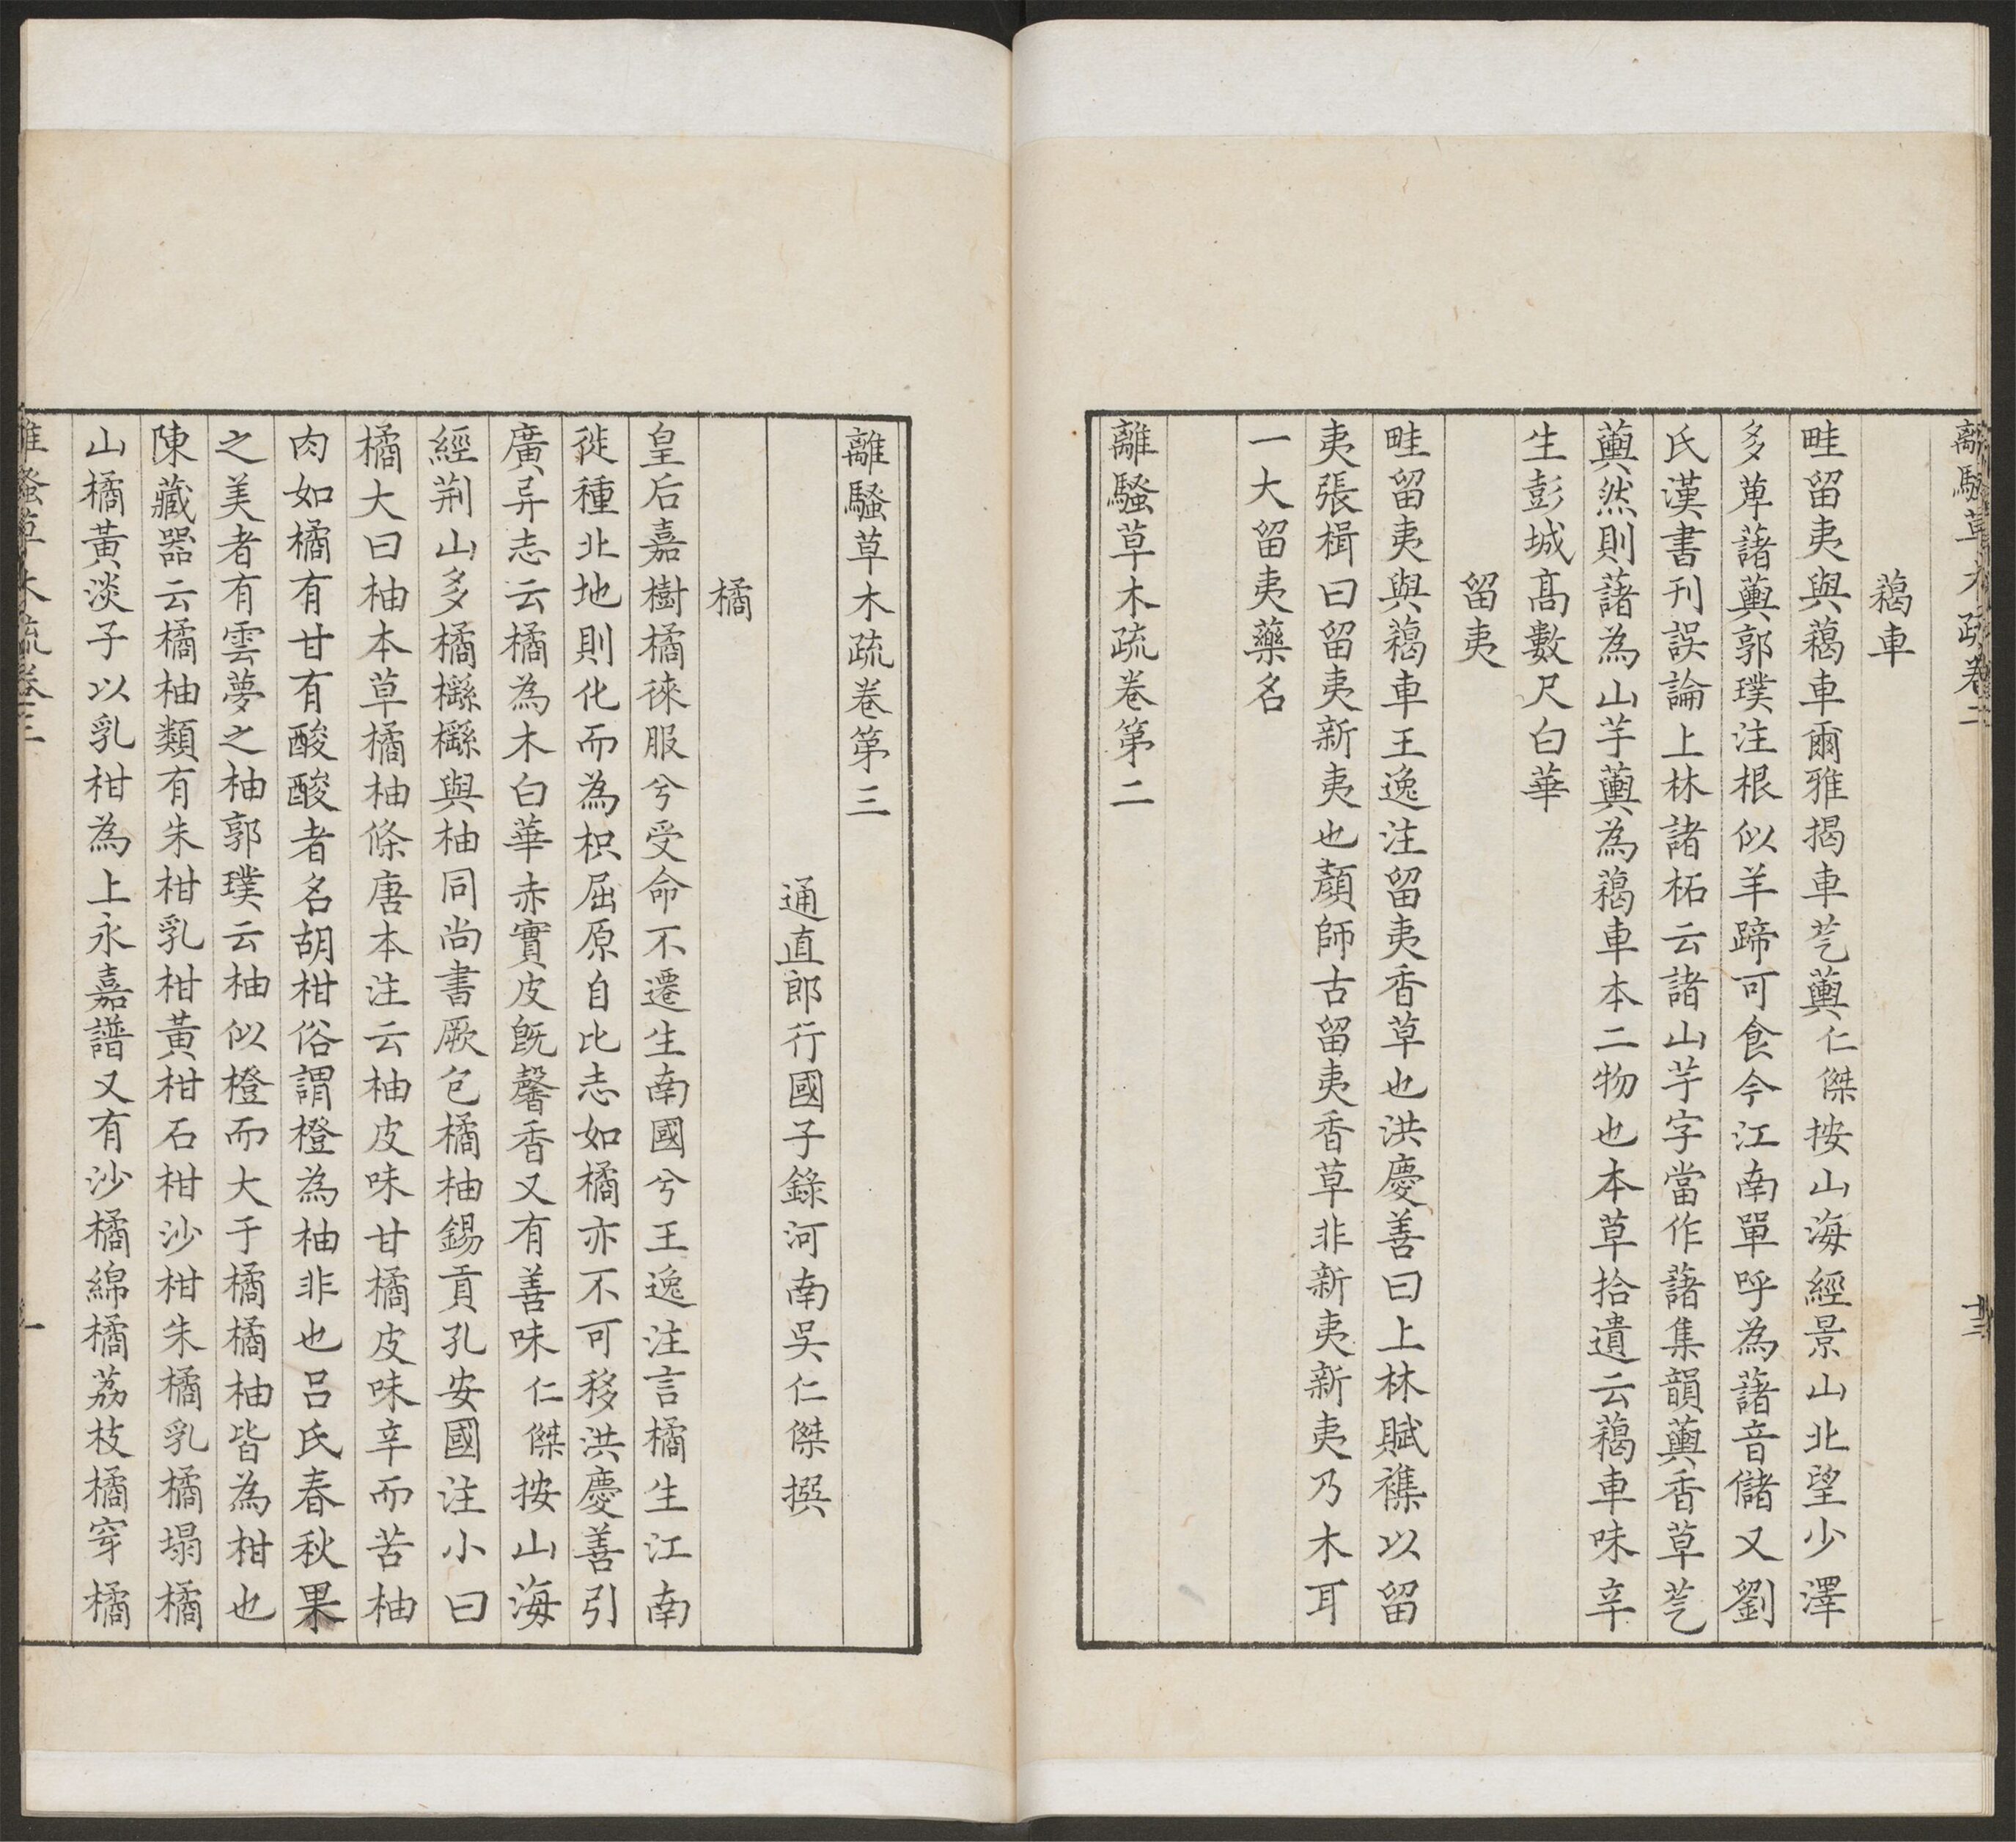 離騷草木疏卷二
十三
藒車
畦留夷與藒車爾雅揭車芞藇仁傑按山海經景山北望少澤
多草藷藇郭璞注根似羊蹄可食今江南單呼為藷音儲又劉
氏漢書刊誤論上林諸柘云諸山芋字當作藷集韻藇香草芞
藇然則藷為山芋藇為藒車本二物也本草拾遺云藒車味辛
生彭城高數尺白華
留夷
畦留夷與藒車王逸注留夷香草也洪慶善曰上林賦襍以留
夷張楫曰留夷新夷也顏師古留夷香草非新夷新夷乃木耳
一大留夷藥名
離騷草木疏卷第二
離騷草木疏卷第三
通直郎行國子錄河南吳仁傑撰
橘
皇后嘉樹橘徠服兮受命不遷生南國兮王逸注言橘生江南
徙種北地則化而為枳屈原自比志如橘亦不可移洪慶善引
廣异志云橘為木白華赤實皮既馨香又有善味仁傑按山海
經荊山多橘櫾櫾與柚同尚書厥包橘柚錫貢孔安國注小曰
橘大曰柚本草橘柚條唐本注云柚皮味甘橘皮味辛而苦柚
肉如橘有甘有酸酸者名胡柑俗謂橙為柚非也呂氏春秋果
之美者有雲夢之柚郭璞云柚似橙而大于橘橘柚皆為柑也
陳藏器云橘柚類有朱柑乳柑黃柑石柑沙柑朱橘乳橘塌橘
山橘黃淡子以乳柑為上永嘉譜又有沙橘綿橘荔枝橘穿橘
離騷草木疏卷三
一